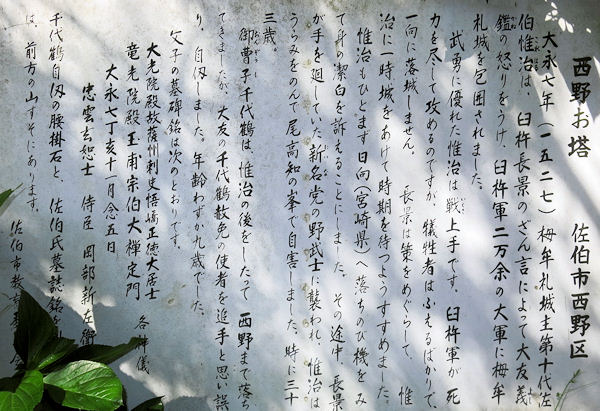 西野お塔　佐伯市西野区
大永七年(一五二七)栂牟札城主第十代佐
伯惟治は、臼杵長景のざん言によって大友義
鑑の怒りをうけ、臼杵軍二万余の大軍に栂牟
札城を包囲されました。
武勇に優れた惟治は戦上手です。臼杵軍が死
力を尽して攻めるのですが、犠牲者はふえるばかりで、
一向に落城しません。長景は策をめぐらして、惟
治に一時城をあけて時期を待つようすすめました。
惟治もひとまず日向(宮崎県)へ落ちのび機をみ
て身の潔白を訴えることにしました。その途中、長景
が手を廻していた新名党の野武士に襲われ、惟治は
うらみをのんで尾高知の峯で自害しました。時に三十
三歳。
御曹子千代鶴は、惟治の後をしたって西野まで落ち
てきましたが、大友の千代鶴赦免の使者を追手と思い誤
り、自刃しました。年齢わずか九歳でした。
父子の墓碑銘は次のとおりです。
大光院殿故薩州刺史悟嬌正徳大居士
竜光院殿玉甫宗伯大禅定門　各神儀
大永七丁亥十月念五日
忠雲玄恕士　侍臣　岡部新左衛
千代鶴自刃の腰掛石と、佐伯氏墓誌銘
は、前方の山すそにあります。
佐伯市教育委員会